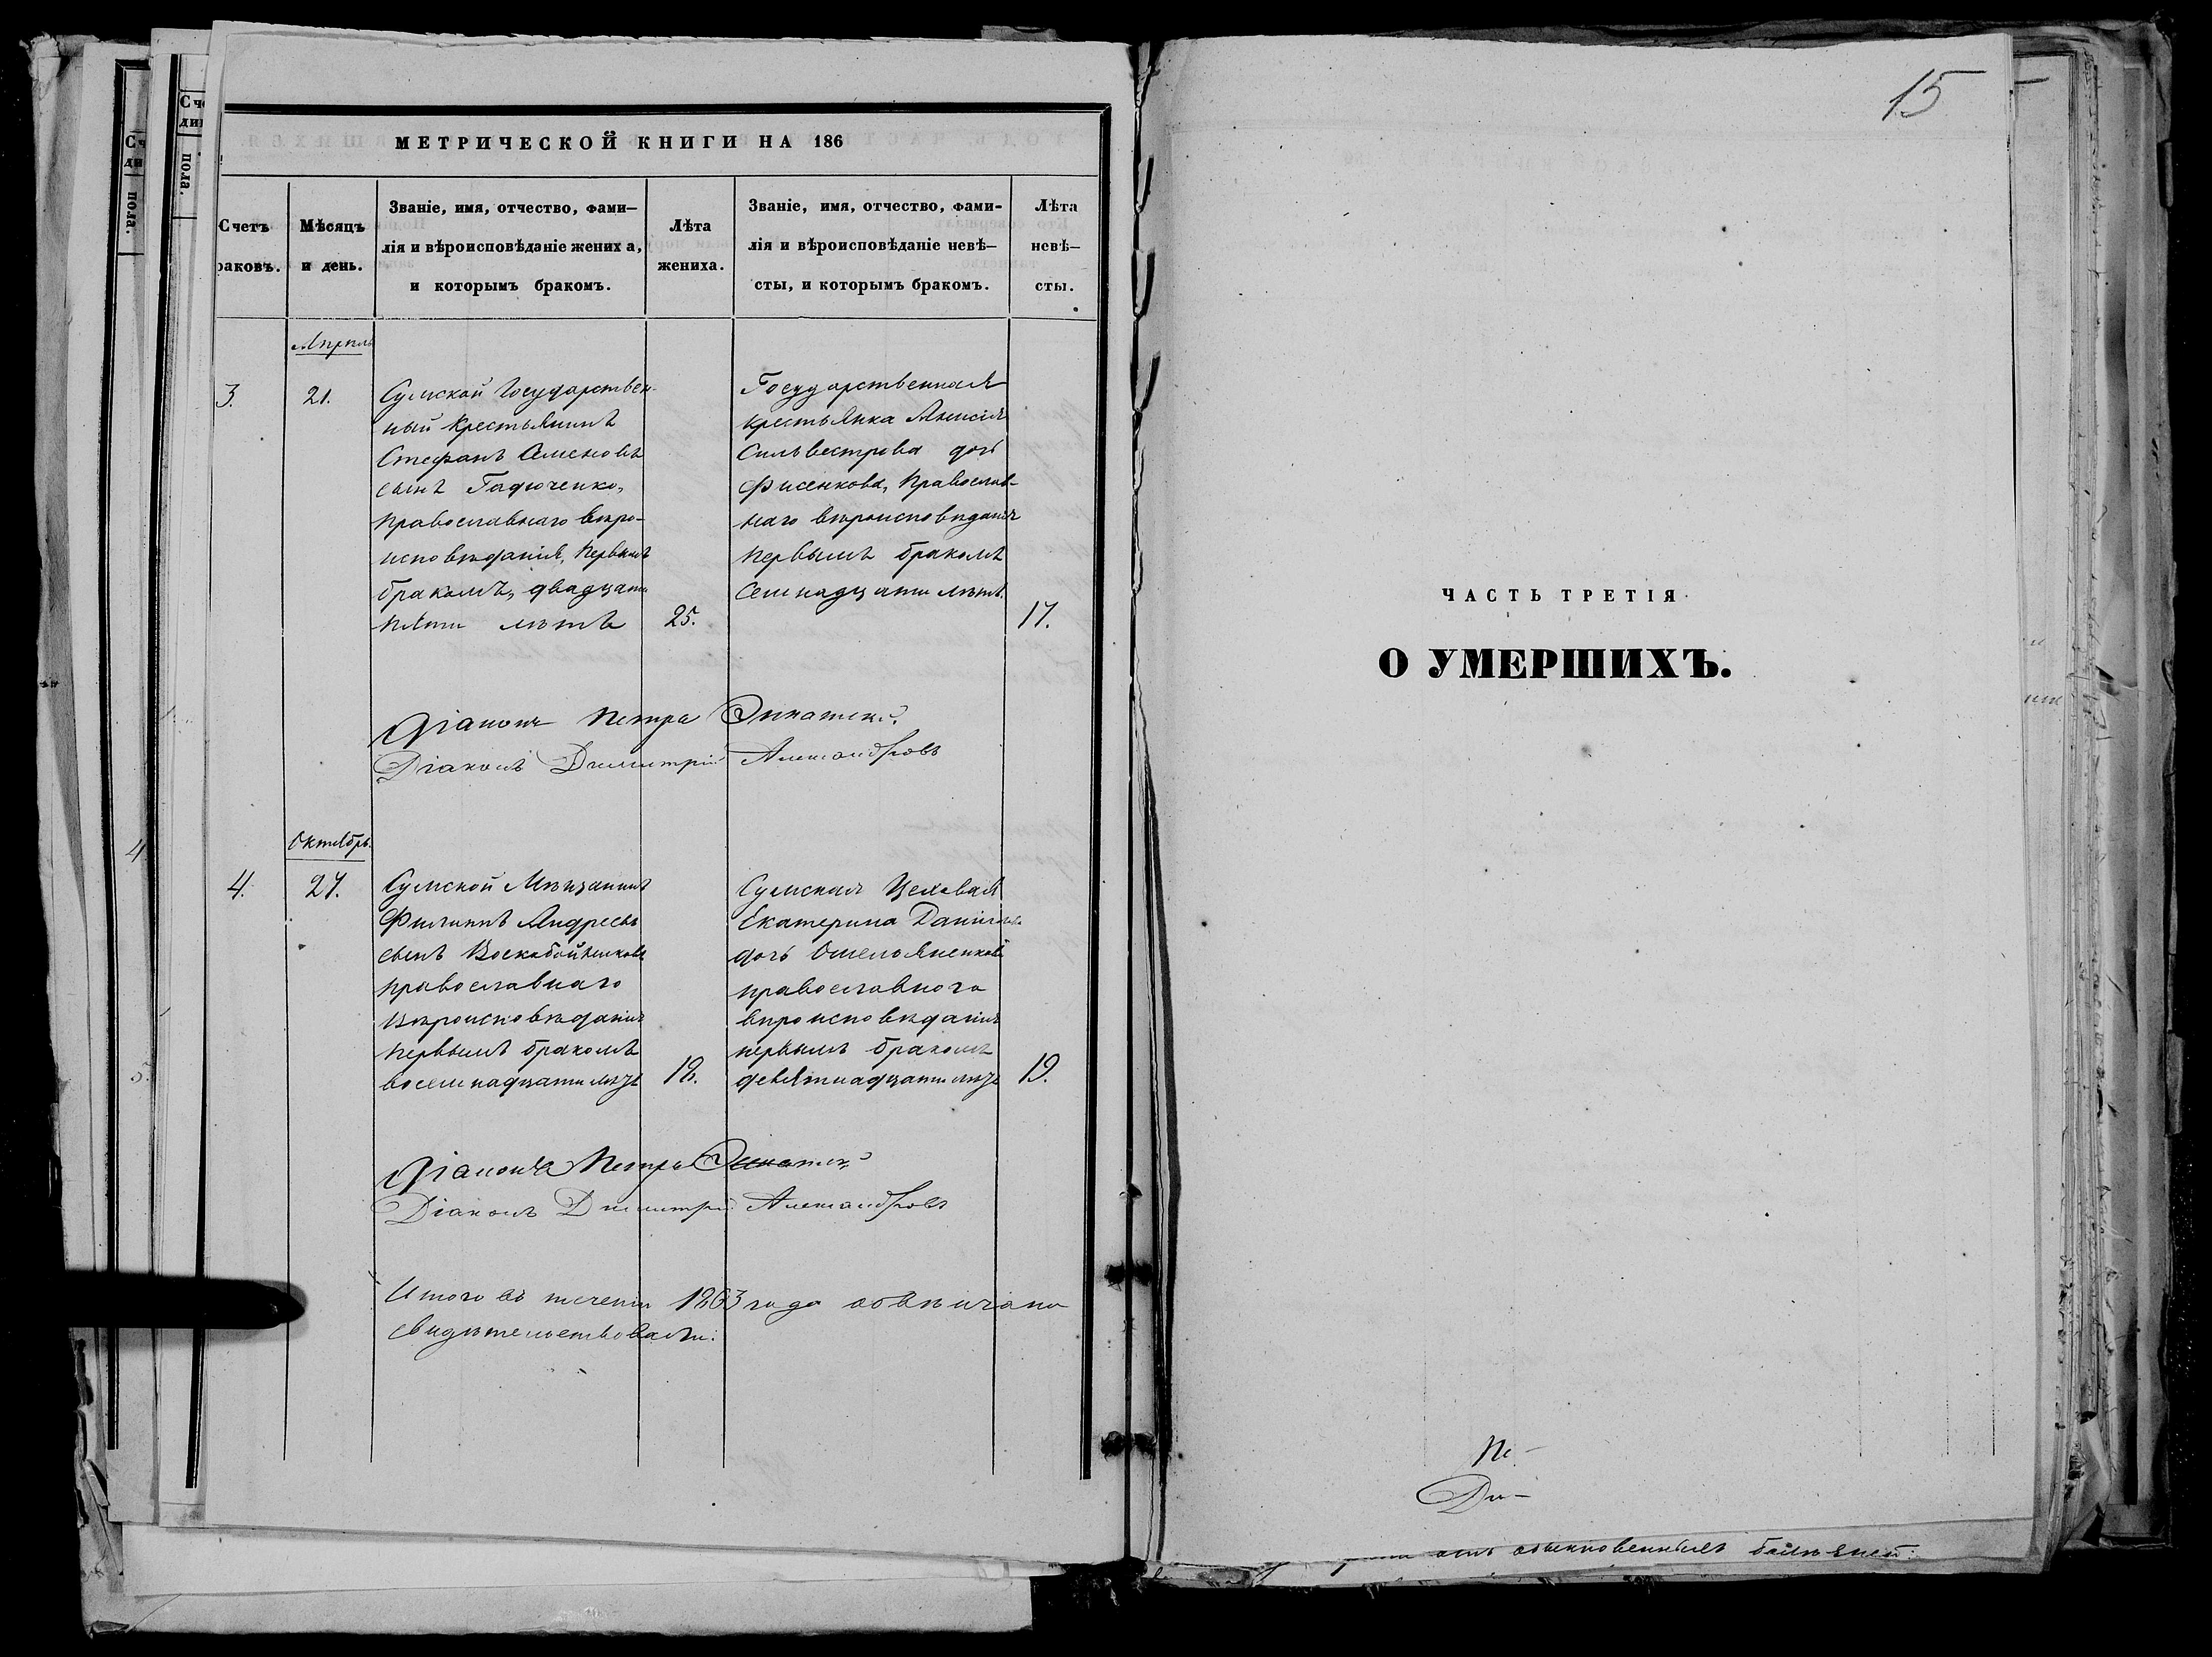 МЕТРИЧЕСКОЙ КНИГИ НА 186
Счетъ
раковъ.
Мѣсяцъ
и день.
Званіе, имя, отчество, фами—
лія и вѣроисповѣданіе жениха,
и которымъ бракомъ.
Лѣта
жениха.
Званіе, имя, отчество, фами-
лія и вѣроисповѣданіе невѣ—
сты, и которымъ бракомъ.
Лѣта
невѣ—
сты.
Апрѣль
3.
21.
Сумской Государствен-
ный крестьянинъ
Стефанъ Семеновъ
сынъ Гадюченко,
православнаго вѣро-
исповѣданія, первымъ
бракомъ, двадцати
пяти лѣтъ
25.
Государственная
крестьянка Анисія
Сильвестрова дочь
Фисенкова, православ-
наго вѣроисповѣданія
первымъ бракомъ
семнадцати лѣтъ.
17.
Діаконъ Петръ
Діаконъ Димитрій Александровъ
Октябрь.
4.
27.
Сумской Мѣщанинъ
Филиппъ Андреевъ
сынъ Воскобойниковъ
православнаго
вѣроисповѣданія
первымъ бракомъ
восемнадцати лѣтъ
18.
Сумская Цеховая
Екатерина Данилова
дочь Омельяненкова
православнаго
вѣроисповѣданія
первымъ бракомъ
девятнадцати лѣтъ
19.
Діаконъ Петръ
Діаконъ Димитрій Александровъ
Итого въ теченіи 1863 года обвѣнчано
свидѣтельствовали:
15
ЧАСТЬ ТРЕТІЯ
О УМЕРШИХЪ.
Пе-
Ди-
отъ обыкновенныхъ болѣзней:
Сч
ди
пола.
Сче
ди
пола.
4
5.